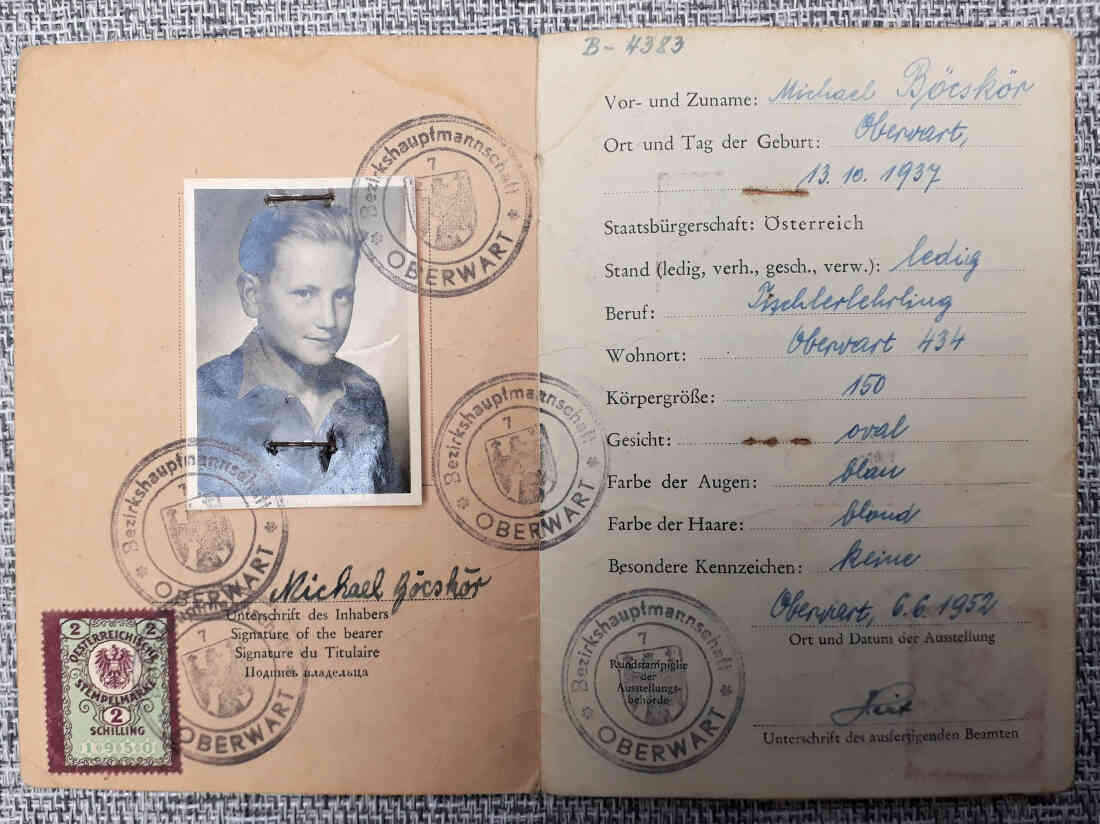 Bezirkshauptmannschaft
7
OBERWART
Bezirkshauptmannschaft
7
OBERWART
Bezirkshauptmannschaft
7
OBERWART
Michael Böcskör
Unterschrift des Inhabers
Signature of the bearer
Signature du Titulaire
Подпись владельца
2 2
OESTERREICHISCHE
STEMPELMARKE
2
SCHILLING
1950
7
OBERWART
B-4383
Vor- und Zuname: Michael Böcskör
Ort und Tag der Geburt: Oberwart,
13. 10. 1937
Staatsbürgerschaft: Österreich
Stand (ledig, verh., gesch., verw.): ledig
Beruf: Tischlerlehrling
Wohnort: Oberwart 434
Körpergröße: 150
Gesicht: oval
Farbe der Augen: blau
Farbe der Haare: blond
Besondere Kennzeichen: keine
Oberwart, 6.6.1952
Ort und Datum der Ausstellung
Bezirkshauptmannschaft
7
Rundstampiglie
der
Ausstellungs-
behörde
OBERWART
Unterschrift des ausfertigenden Beamten